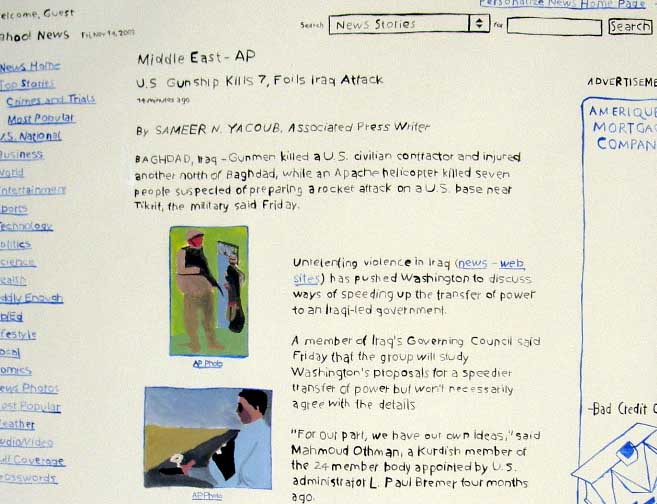 elcome, Guest
ahoo! News Fri, Nov 14, 2003
Personalize News Home Page
Search News Stories for Search
News Home
Top Stories
Crimes and Trials
Most Popular
U.S. National
Business
World
Entertainment
Sports
Technology
Politics
Science
Health
Oddly Enough
Op/Ed
Lifestyle
Local
Comics
News Photos
Most Popular
Weather
Audio/Video
Full Coverage
Crosswords
Middle East - AP
U.S Gunship Kills 7, Foils Iraq Attack
14 minutes ago
By SAMEER N. YACOUB, Associated Press Writer
BAGHDAD, Iraq - Gunmen killed a U.S. civilian contractor and injured
another north of Baghdad, while an Apache helicopter killed seven
people suspected of preparing a rocket attack on a U.S. base near
Tikrit, the military said Friday.
AP Photo
Unrelenting violence in Iraq (news - web
sites) has pushed Washington to discuss
ways of speeding up the transfer of power
to an Iraqi-led government.
A member of Iraq's Governing Council said
Friday that the group will study
Washington's proposals for a speedier
transfer of power but won't necessarily
agree with the details
AP Photo
"For our part, we have our own ideas," said
Mahmoud Othman, a Kurdish member of
the 24 member body appointed by U.S.
administrator L. Paul Bremer four months
ago.
ADVERTISEME
AMERIQUE
MORTGAG
COMPAN
-Bad Credit O